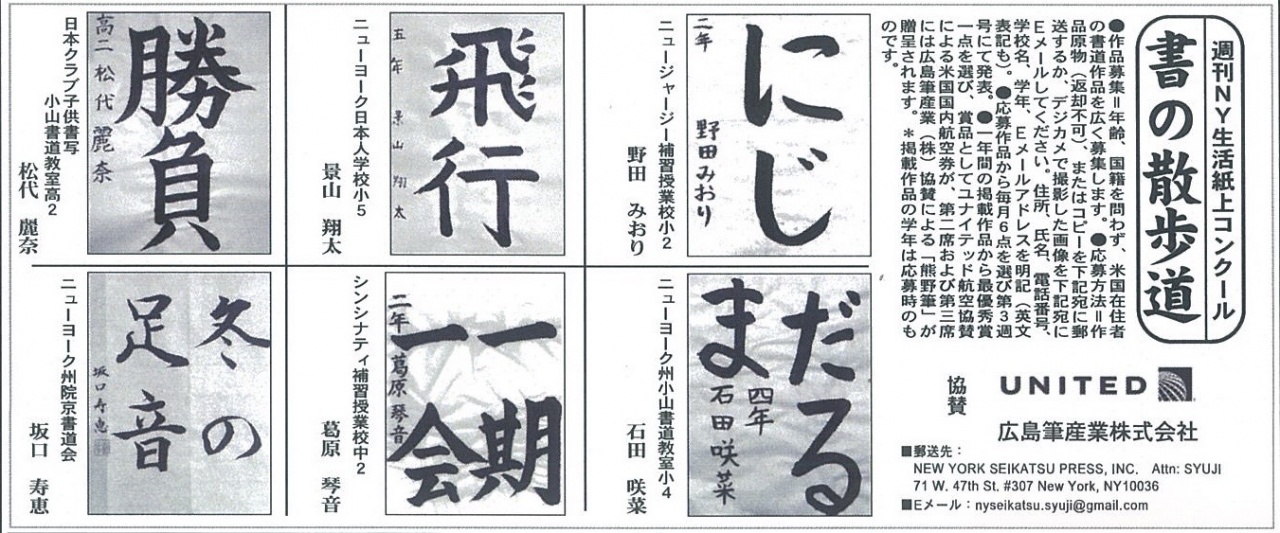 週刊NY生活紙上コンクール
書の散歩道
●作品募集=年齢、国籍を問わず、米国在住者
の書道作品を広く募集します。●応募方法=作
品原物(返却不可)、またはコピーを下記宛に郵
送するか、デジカメで撮影した画像を下記宛に
Eメールしてください。住所、氏名、電話番号、
学校名、学年、Eメールアドレスを明記(英文
表記も)。●応募作品から毎月6点を選び第3週
号にて発表。●一年間の掲載作品から最優秀賞
一点を選び、賞品としてユナイテッド航空協賛
による米国国内航空券が、第二席および第三席
には広島筆産業(株)協賛による「熊野筆」が
贈呈されます。*掲載作品の学年は応募時のも
のです。
協賛
UNITED
広島筆産業株式会社
■郵送先:
NEW YORK SEIKATSU PRESS, INC. Attn: SYUJI
71 W. 47th St. #307 New York, NY10036
■Eメール:nyseikatsu.syuji@gmail.com
にじ
二年
野田みおり
ニュージャージー補習授業校小2
野田 みおり
飛行
五年 景山翔太
ニューヨーク日本人学校小5
景山 翔太
勝負
高二 松代麗奈
日本クラブ子供書写
小山書道教室高2
松代 麗奈
だる
ま
四年
石田咲菜
ニューヨーク州小山書道教室小4
石田 咲菜
一期
一会
二年 葛原琴音
シンシナティ補習授業校中2
葛原 琴音
冬の
足音
坂口寿恵
ニューヨーク州院京書道会
坂口 寿恵